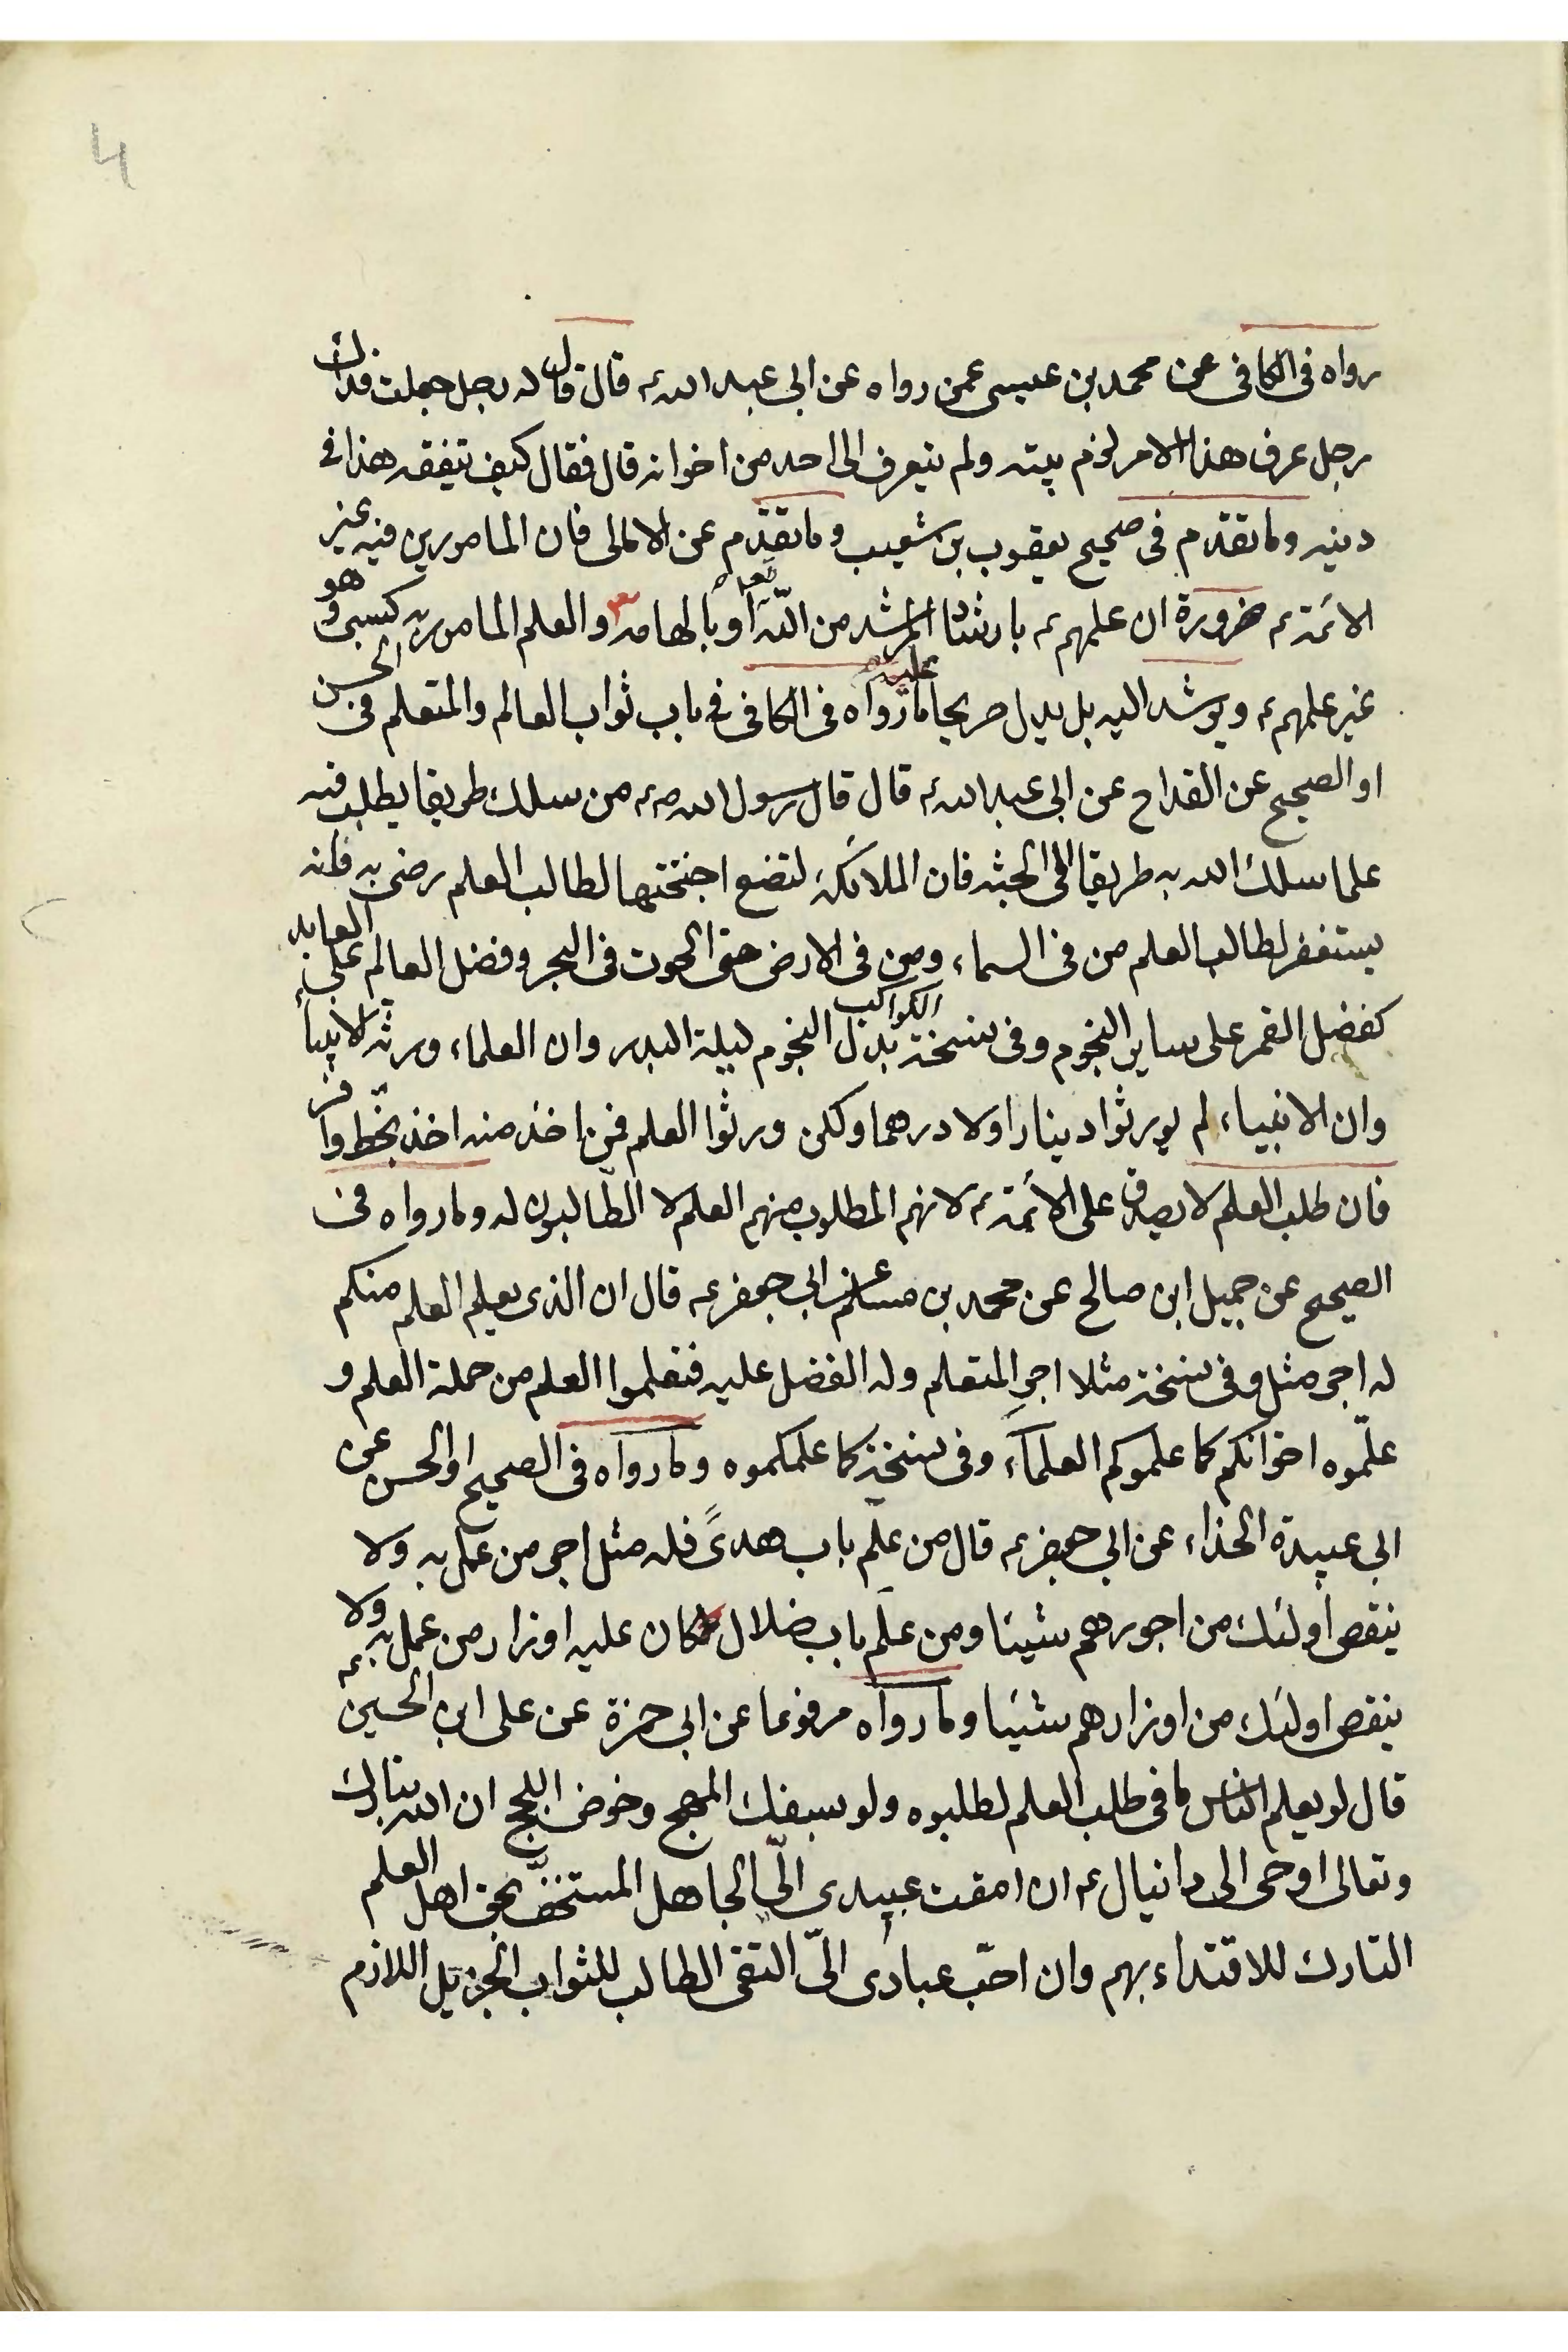 4
رواه فى الكافى عن محمد بن عيسى عمن رواه عن ابى عبد الله ع قال قال له رجل جعلت فداك
رجل عرف هذا الامر لزم بيته ولم يتعرف الى احد من اخوانه قال فقال كيف يتفقه هذا فى
دينه وما تقدم فى صحيح يعقوب بن شعيب وما تقدّم عن الامالى فان المامورين فيه غير
الائمة ع ضرورة ان علمهم ع بارشاد المرشد من اللّه تعالى او بالهامه والعلم المامور به كسبى وهو
غير علمهم ع ويرشد اليه بل يدل صريحا عليه ما رواه فى الكافى فى باب ثواب العالم والمتعلم فى الحسن
او الصحيح عن القداح عن ابى عبد الله ع قال قال رسول الله ص من سلك طريقا يطلب فيه
علما سلك الله به طريقا الى الجنة فان الملائكة لتضع اجنحتها لطالب العلم رضى به فانه
يستغفر لطالب العلم من فى السماء ومن فى الارض حتى الحوت فى البحر وفضل العالم على العابد
كفضل القمر على ساير النجوم وفى نسخة الكواكب بدل النجوم ليلة البدر وان العلماء ورثة الانبياء
وان الانبياء لم يورثوا دينارا ولا درهما ولكن ورثوا العلم فمن اخذ منه اخذ بحّظ وافر
فان طلب العلم لا يصدق على الائمة ع لانهم المطلوب منهم العلم لا الطّالبون له وما رواه فى
الصحيح عن جميل ابن صالح عن محمد بن مسلم عن ابى جعفر ع قال ان الذى يعلم العلم منكم
له اجر مثل وفى نسخة مثلا اجر المتعلم وله الفضل عليه فتعلموا العلم من حملة العلم و
علّموه اخوانكم كما علموكم العلماء وفى نسخة كما علمكموه وما رواه فى الصحيح او الحسن عن
ابى عبيدة الحذاء عن ابى جعفر ع قال من علّم باب هدىً فله مثل اجر من عمل به ولا
ينقص أولئك من اجورهم شيئا ومن علّم باب ضلال كان عليه اوزار من عمل به ولا
ينقص اولئك من اوزارهم شيئا وما رواه مرفوعا عن ابى حمزة عن على ابن الحسين ع
قال لو يعلم الناس ما فى طلب العلم لطلبوه ولو بسفك المهج وخوض اللجج ان الله تبارك
وتعالى اوحى الى دانيال ع ان امقت عبيدى الىّ الجاهل المستخفّ بحق اهل العلم
التارك للاقتداء بهم وان احبّ عبادى الىّ التقى الطالب للثواب الجزيل اللازم